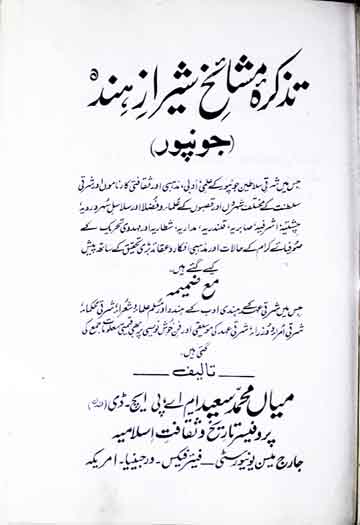 تذکرۂ مشائخ شیرازِ ہند
(جونپور)
جس میں شرقی سلاطین جونپور کے علمی، ادبی، مذہبی اور ثقافتی کارناموں اور شرقی
سلطنت کے مختلف شہروں اور قصبوں کے علماء و فضلا اور سلاسل سُہروردیہ
چشتیہ، اشرفیہ، صابریہ، قلندریہ، مداریہ، شطاریہ اور مہدوی تحریک کے
صوفیائے کرام کے حالات اور مذہبی افکار و عقائد بڑی تحقیق کے ساتھ پیش
کیے گئے ہیں۔
مع ضمیمہ
جس میں شرقی عہد کے ہندی ادب کے ہندو اور مسلم علماء و شعراء شرقی حکماء
شرقی اُمراء و وزراء شرقی عہد کی موسیقی اور فن خوش نویسی پر بھی قیمتی معلومات جمع کی
گئی ہیں۔
تالیف
میاں محمد سعید ایم اے پی ایچ۔ڈی
پروفیسر تاریخ و ثقافت اسلامیہ
جارج میسن یونیورسٹی۔ فیئرفیکس۔ ورجینیا۔ امریکہ